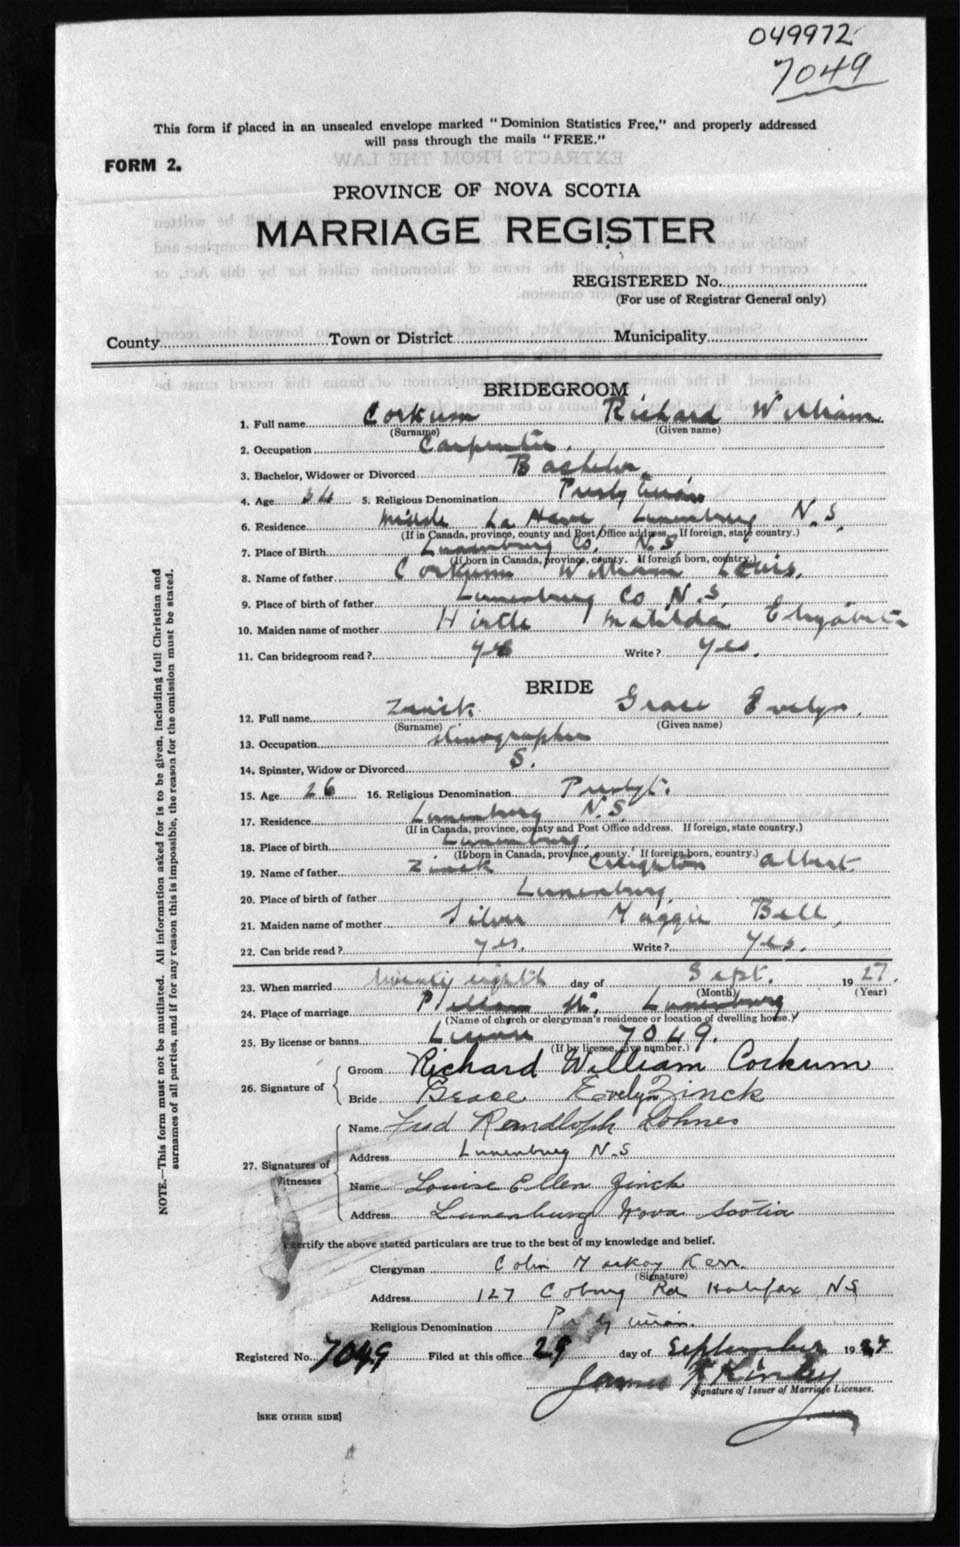 049972
7049
This form if placed in an unsealed envelope marked "Dominion Statistics Free," and properly addressed
will pass through the mails "FREE."
FORM 2.
PROVINCE OF NOVA SCOTIA
MARRIAGE REGISTER
REGISTERED No.
(For use of Registrar General only)
County Town or District Municipality
BRIDEGROOM
1. Full name Corkum Richard William
(Surname) (Given name)
2. Occupation Carpenter.
3. Bachelor, Widower or Divorced Bachelor.
4. Age 34 5. Religious Denomination Presbyterian
6. Residence Middle La Have Lunenburg N.S.
(If in Canada, province, county and Post Office address. If foreign, state country.)
7. Place of Birth Lunenburg Co. N.S
(If born in Canada, province, county. If foreign born, country.)
8. Name of father Corkum William Lewis.
9. Place of birth of father Lunenburg Co N.S.
10. Maiden name of mother Hirtle Matilda Elizabeth
11. Can bridegroom read? yes Write? yes.
BRIDE
12. Full name Zinck Grace Evelyn.
(Surname) (Given name)
13. Occupation Stenographer
14. Spinster, Widow or Divorced S.
15. Age 26 16. Religious Denomination Presbyt.
17. Residence Lunenburg N.S.
(If in Canada, province, county and Post Office address. If foreign, state country.)
18. Place of birth Lunenburg.
(If born in Canada, province, county. If foreign born, country.)
19. Name of father Zinck Creighton Albert
20. Place of birth of father Lunenburg
21. Maiden name of mother Silver Maggie Bell,
22. Can bride read? yes. Write? Yes.
23. When married twenty eighth day of Sept. 1927.
(Month) (Year)
24. Place of marriage St. Lunenburg
(Name of church or clergyman's residence or location of dwelling house.)
25. By license or banns License 7049.
(If by license, give number.)
26. Signature of
Groom Richard William Corkum
Bride Grace Evelyn Zinck
27. Signatures of Witnesses
Name Fred Randloph Lohnes
Address Lunenburg N.S
Name Louise Ellen Zinck
Address Lunenburg Nova Scotia
I certify the above stated particulars are true to the best of my knowledge and belief.
Clergyman Colin Mackay Kerr.
(Signature)
Address 127 Coburg Rd Halifax NS
Religious Denomination Presbyterian.
Registered No. 7049 Filed at this office 29 day of September 1927
James Kinley
Signature of Issuer of Marriage Licenses.
[SEE OTHER SIDE]
NOTE.—This form must not be mutilated. All information asked for is to be given, including full Christian and
surnames of all parties, and if for any reason this is impossible, the reason for the omission must be stated.